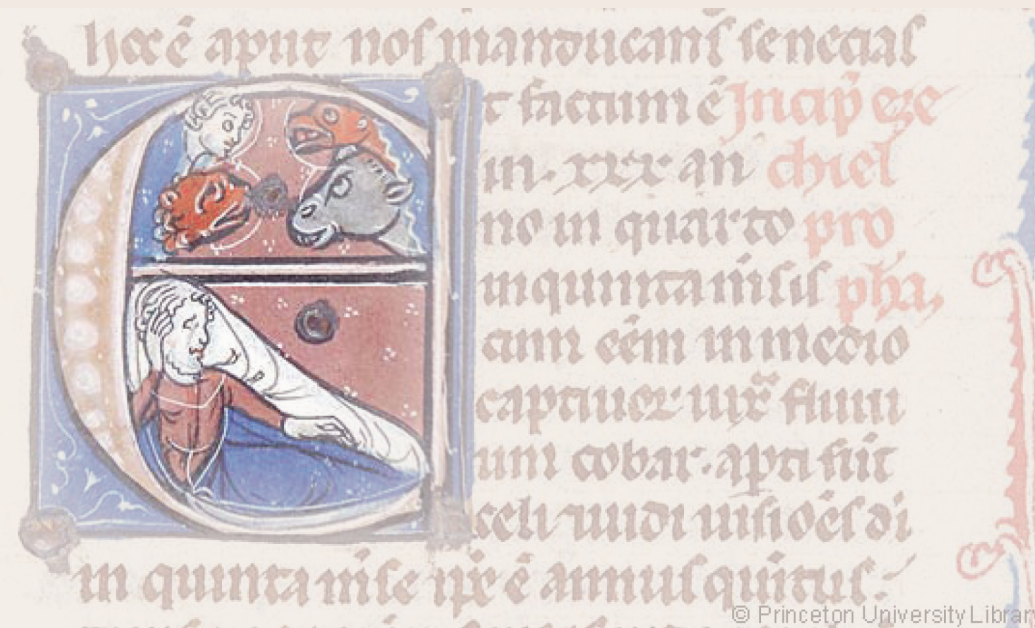 hoc ē aput nos manducans senecias
t factum ē Incip̄ eze
in. xxx an chiel
no in quarto pro
in quinta m̄sis pha,
cum eēm in medio
captiuor iux̄ fluui
um cobar. apti sūt
celi uidi uisioēs di
in quinta m̄se ip̄e ē annus quītus.
© Princeton University Library